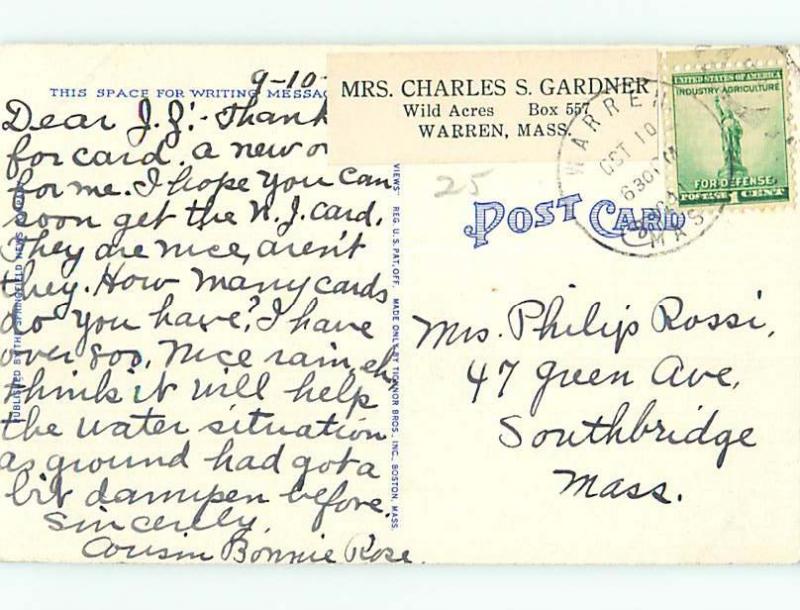 9-10-
THIS SPACE FOR WRITING MESSAG
Dear J.J:- Thank
for card. a new o
for me. I hope you can
soon get the N.J. card.
They are nice, aren't
they. How many cards
do you have? I have
over 800. Nice rain, eh,
think it will help
the water situation
as ground had got a
bit dampen before.
Sincerely,
Cousin Bonnie Rose.
PUBLISHED BY THE SPRINGFIELD NEWS
VIEWS" REG. U.S. PAT. OFF. MADE ONLY BY TICHNOR BROS., INC., BOSTON, MASS.
MRS. CHARLES S. GARDNER
Wild Acres Box 557
WARREN, MASS.
WARREN
OCT 10
630PM
MASS
UNITED STATES OF AMERICA
INDUSTRY AGRICULTURE
FOR DEFENSE
POSTAGE 1 CENT
25
POST CARD
Mrs. Philip Rossi,
47 Green Ave,
Southbridge
Mass.